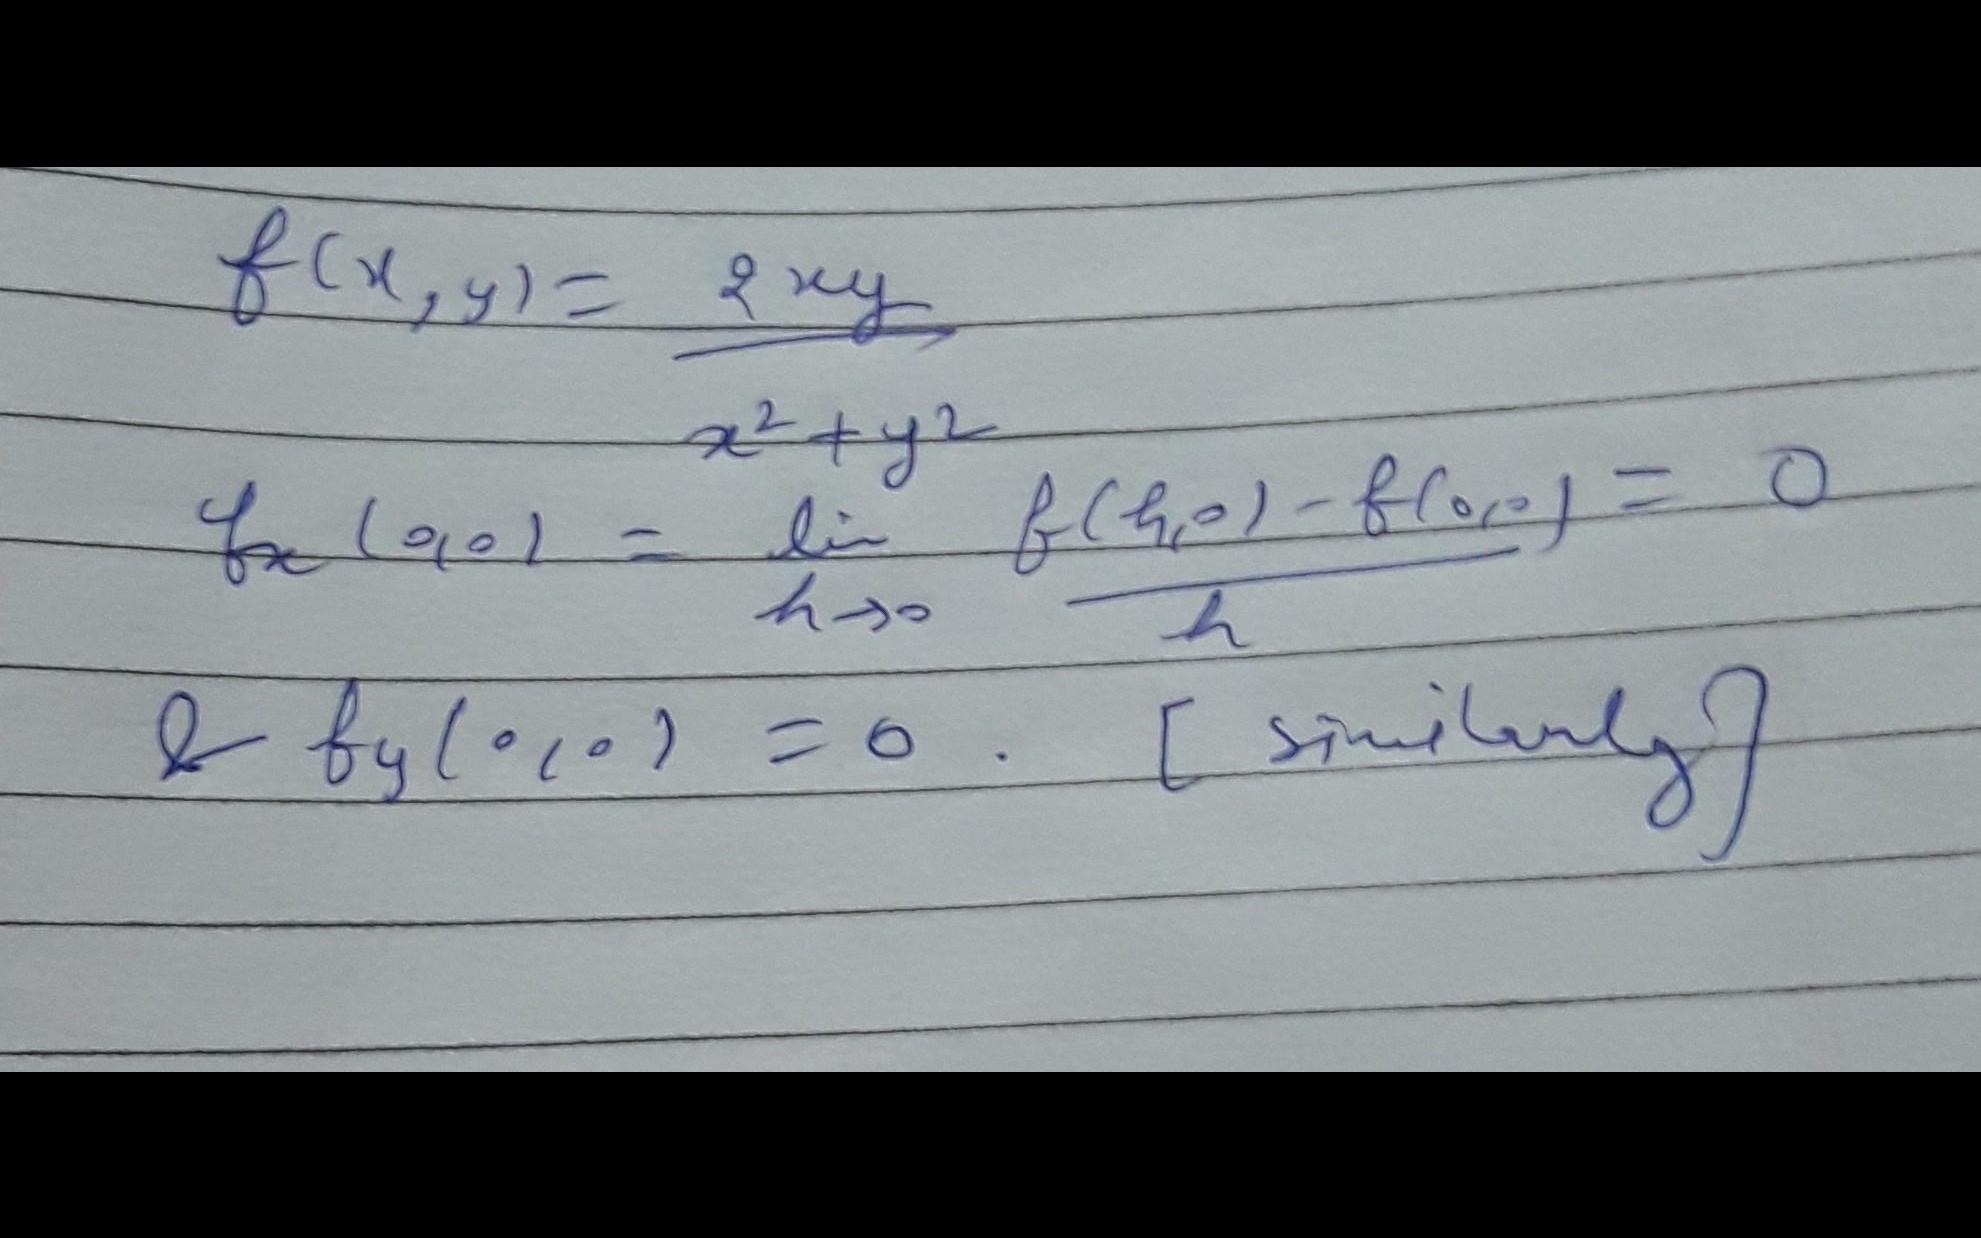 f(x,y) = 2xy
x² + y²
fx (0,0) = lim f(h,0) - f(0,0) = 0
h→0 h
& fy(0,0) = 0 . [ similarly ]